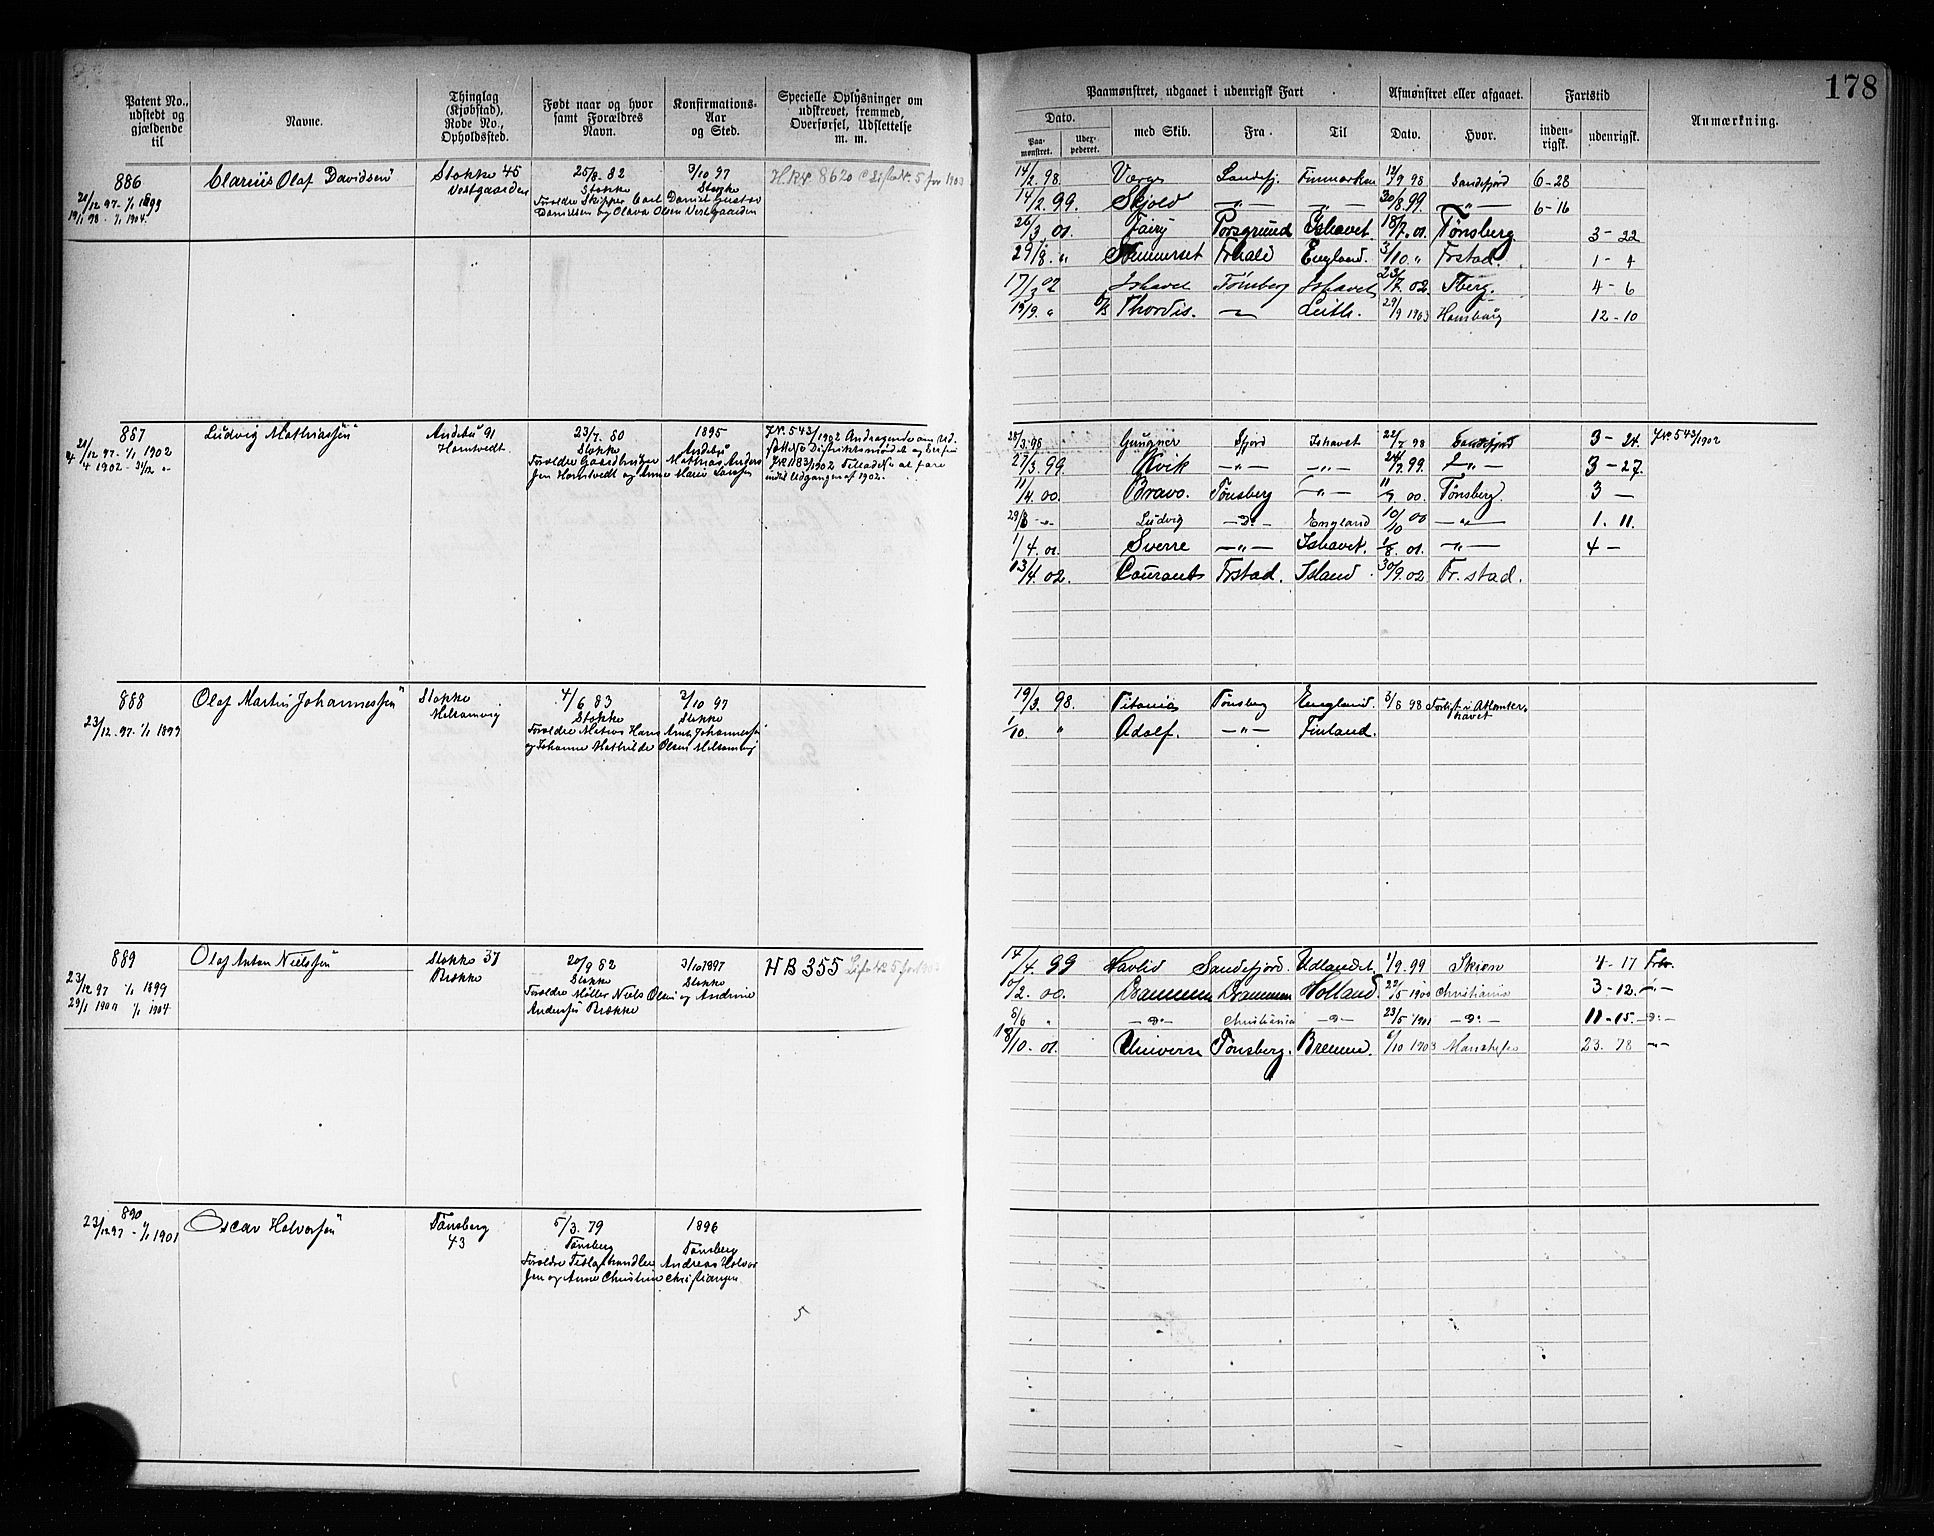 178
Patent No., udstedt og gjældende til
Navne.
Thinglag (Kjøbstad), Rode No., Opholdssted.
Født naar og hvor samt Forældres Navn.
Konfirmations- Aar og Sted.
Specielle Oplysninger om udskrevet, fremmed, Overførsel, Udslettelse m. m.
Paamønstret, udgaaet i udenrigsk Fart
Afmønstret eller afgaaet.
Fartstid
Anmærkning.
Dato.
Paa- mønstret.
Udex- pederet.
med Skib.
Fra
Til
Dato.
Hvor.
inden- rigsk.
udenrigsk.
886
21/12 97 - 1/1 1899
19/1 98 - 1/1 1904
Clarius Olaf Davidsen
Stokke 45
Vestgaarden
25/8. 82
Stokke
Forældre Skipper Carl Daniel Gustav
Danielsen og Olava Olsen Vestgaarden
3/10 97
Stokke
H.R.No. 8620 Liste No. 5 for 1903
14/2 98. Værge Sandefj. Finmarken 12/9 98 Sandefjord 6-28
14/2 99. Skjold -"- -"- 30/8 99. -"- 6-16
26/3 01. Fairy Porsgrund Ishavet 18/7. 01. Tønsberg 3-22
29/8. " Sommerset Frhald England. 3/10 " Frstad. 1-4
17/3 02 Ishavet Tønsberg Ishavet 23/7. 02. Tberg. 4-6
19/9. " D/S Thordis. - Leith. 29/9 1903 Hamburg 12-10
887
21/12 97. - 1/1 1902
4/4 1902 - 31/12 "
Ludvig Mathiassen
Andebu 91
Horntvedt
23/7. 80
Stokke
Forældre Gaardbruger Mathias Anders
sen Horntvedt og Anne Marie Larsen
1895
Andebu
J.No. 543/1902 Andragende om Ud.
J.No. 1183/1902 Tilladelse at fare
indtil Udgangen af 1902.
28/3. 98 Gungner Sfjord Ishavet 22/7 98 Sandefjord 3-24. J.No. 543/1902
27/3 99. Kvik -"- -"- 24/7 99. -"- 3-27.
11/4 00. Bravo. Tønsberg -"- 11/7 00. Tønsberg. 3 -
29/8 -"- Ludvig -D.- England 10/10 00 -"- 1. 11.
1/4. 01. Sverre -"- Ishavet. 1/8 01. -"- 4 -
13/4. 02. Courants Frstad. Island. 30/9. 02 Fr.stad.
888
23/12. 97. 1/1 1899
Olaf Martin Johannessen
Stokke
Melsomvig
4/6 83
Stokke
3/10 97
Stokke
Forældre Matros Hans Anth. Johannessen
og Johanne Mathilde Olsen Melsomvig
19/3. 98. Titania Tønsberg England. 3/6 98 Forlist i Atlanter-
havet
1/10. " Adolf. -"- Finland.
889
23/12 97 1/1 1899
29/1 1901 1/1 1904
Olaf Anton Nielssen
Stokke 37
Brække
20/9 82
Stokke
3/10 1897
Stokke
Forældre Møller Niels Olsen og Andrine
Andersen Brække
H B 355 Liste No. 5 for 1903
14/4. 99 Havlid Sandefjord. Udlandet. 1/9. 99 Skien 4-17
10/2. 00. Drammen Drammen Holland. 22/5 1900 Christiania 3-12. -"-
8/6 " -D- Christiania -D- 23/5 1901 -D- 11-15. -D-
18/10. 01. Universe Tønsberg. Bremen. 6/10 1903 23. 78 -"-
890
23/12 97 - 1/1 1901
Oscar Halvorsen
Tønsberg
43
5/3. 79
Tønsberg
1896
Tønsberg
Forældre Fedtaghandler Andreas Halvor
sen og Anne Christine Christiansen
5